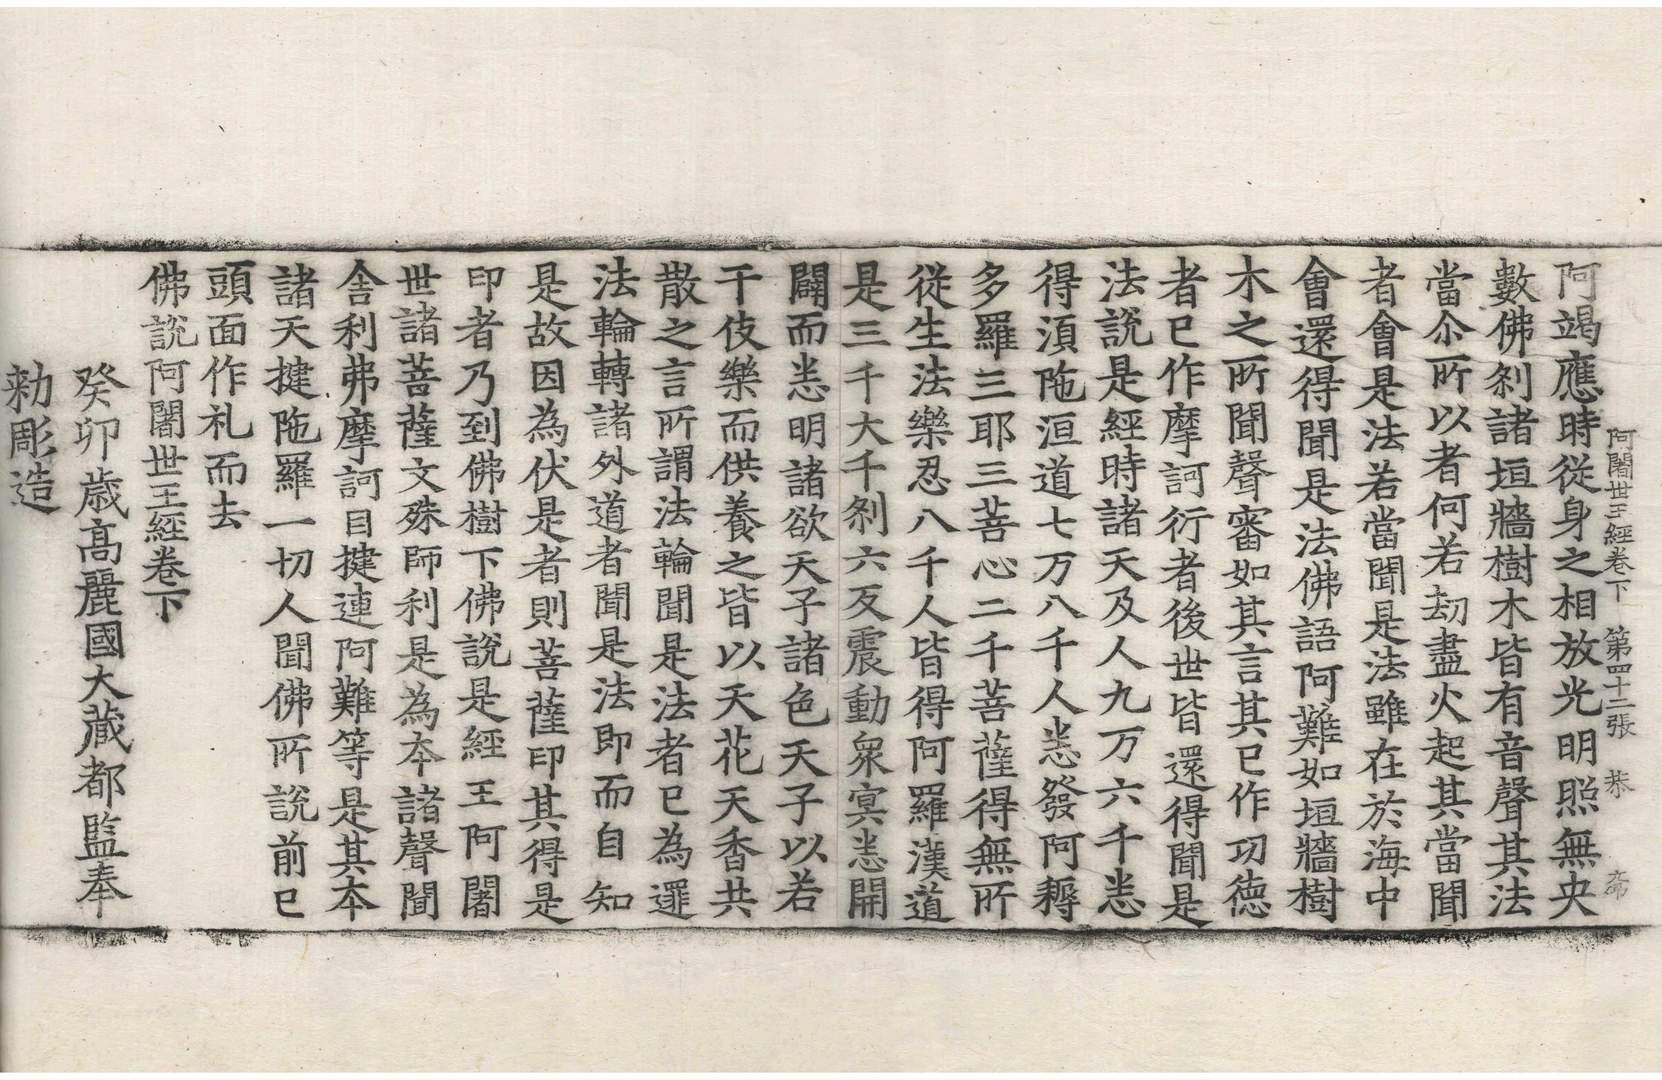 阿闍世王經卷下　第四十二張　恭
阿竭應時從身之相放光明照無央
數佛刹諸垣牆樹木皆有音聲其法
當尒所以者何若劫盡火起其當聞
者會是法若當聞是法雖在於海中
會還得聞是法佛語阿難如垣牆樹
木之所聞聲審如其言其已作功德
者已作摩訶衍者後世皆還得聞是
法說是經時諸天及人九万六千悉
得湏陁洹道七万八千人悉發阿耨
多羅三耶三菩心二千菩薩得無所
從生法樂忍八千人皆得阿羅漢道
是三千大千刹六反震動衆冥悉開
闢而悉明諸欲天子諸色天子以若
干伎樂而供養之皆以天花天香共
散之言所謂法輪聞是法者已為還
法輪轉諸外道者聞是法即而自知
是故因為伏是者則菩薩印其得是
印者乃到佛樹下佛說是經王阿闍
世諸菩薩文殊師利是為本諸聲聞
舍利弗摩訶目揵連阿難等是其本
諸天揵陁羅一切人聞佛所說前已
頭面作礼而去
佛說阿闍世王經卷下
癸卯歲高麗國大藏都監奉
勅彫造